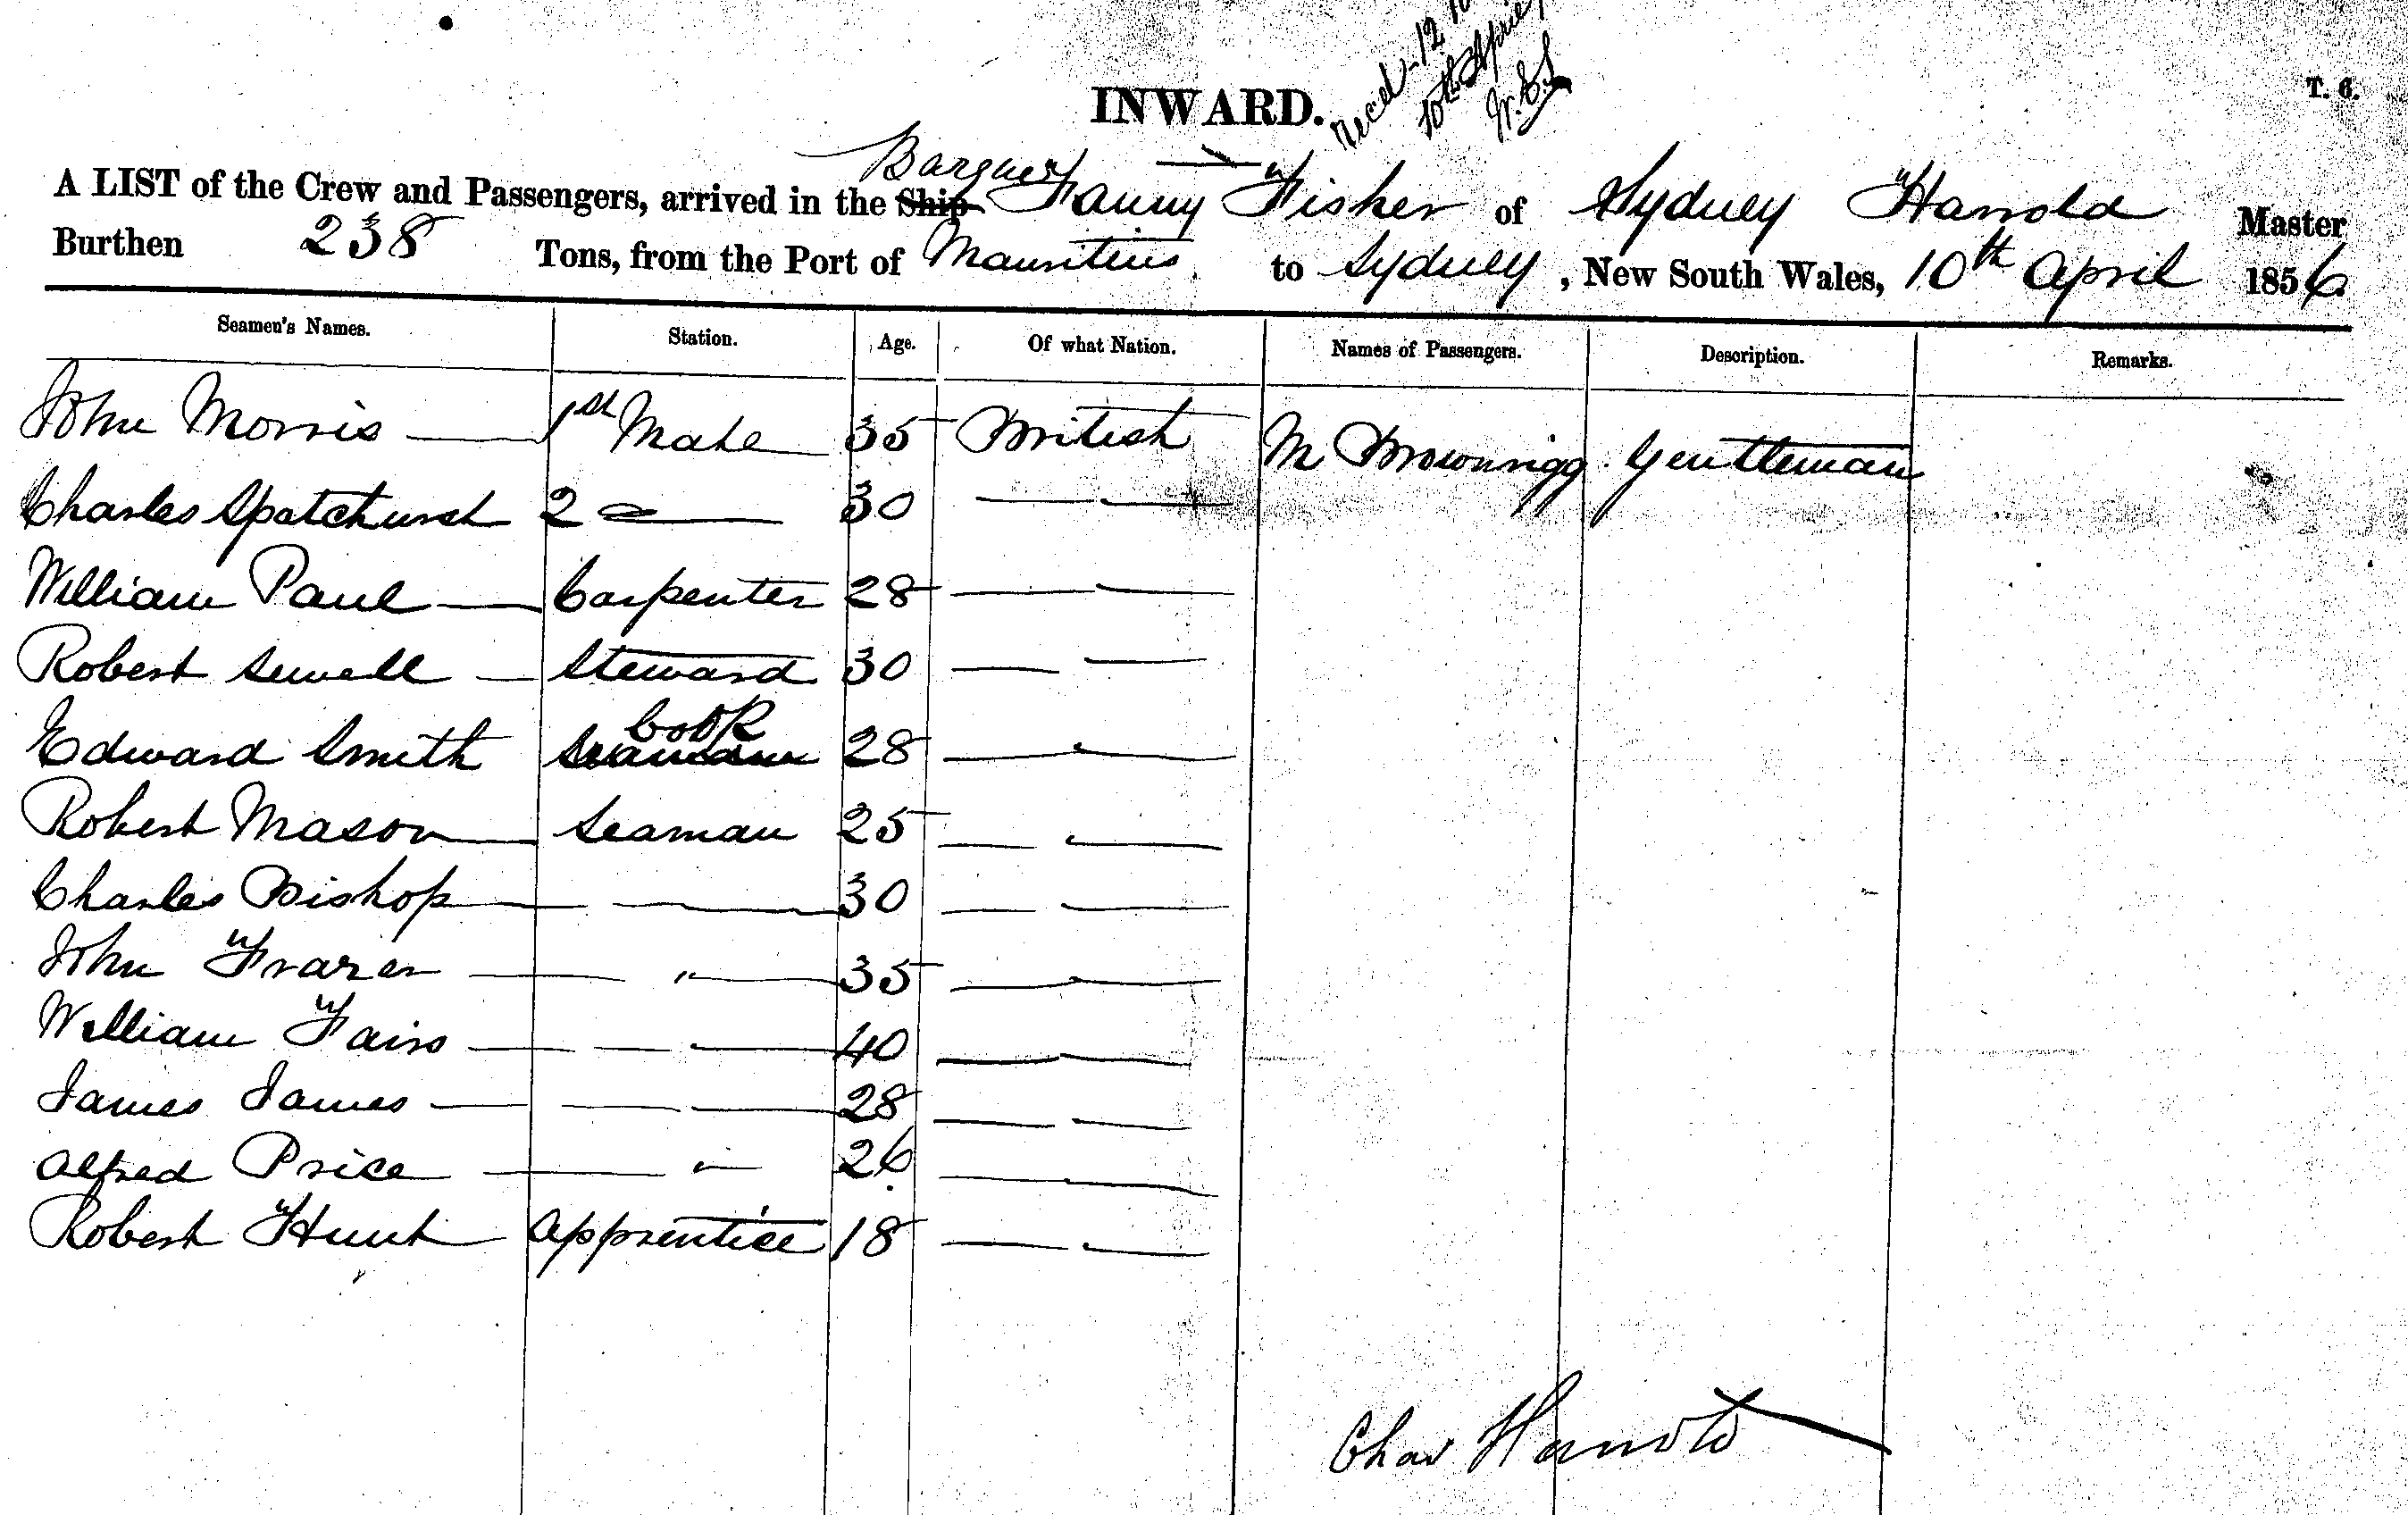 INWARD.
Recd 12
10th April
T. 6.
Barque
A LIST of the Crew and Passengers, arrived in the Ship Fanny Fisher of Sydney Harrold Master
Burthen 238 Tons, from the Port of Mauritius to Sydney, New South Wales, 10th April 1856.
Seamen's Names. Station. Age. Of what Nation. Names of Passengers. Description. Remarks.
John Morris — 1st Mate 35 British M Brownrigg Gentleman
Charles Spatchurst 2 — 30 — —
William Paul — Carpenter 28 — —
Robert Sewell — Steward 30 — —
Cook
Edward Smith Seaman 28 — —
Robert Mason — Seaman 25 — —
Charles Bishop — — 30 — —
John Frazer — " — 35 — —
William Fairs — — — 40 — —
James James — — — 28 — —
Alfred Price — " — 26 — —
Robert Hunt — Apprentice 18 — —
Chas Harrold